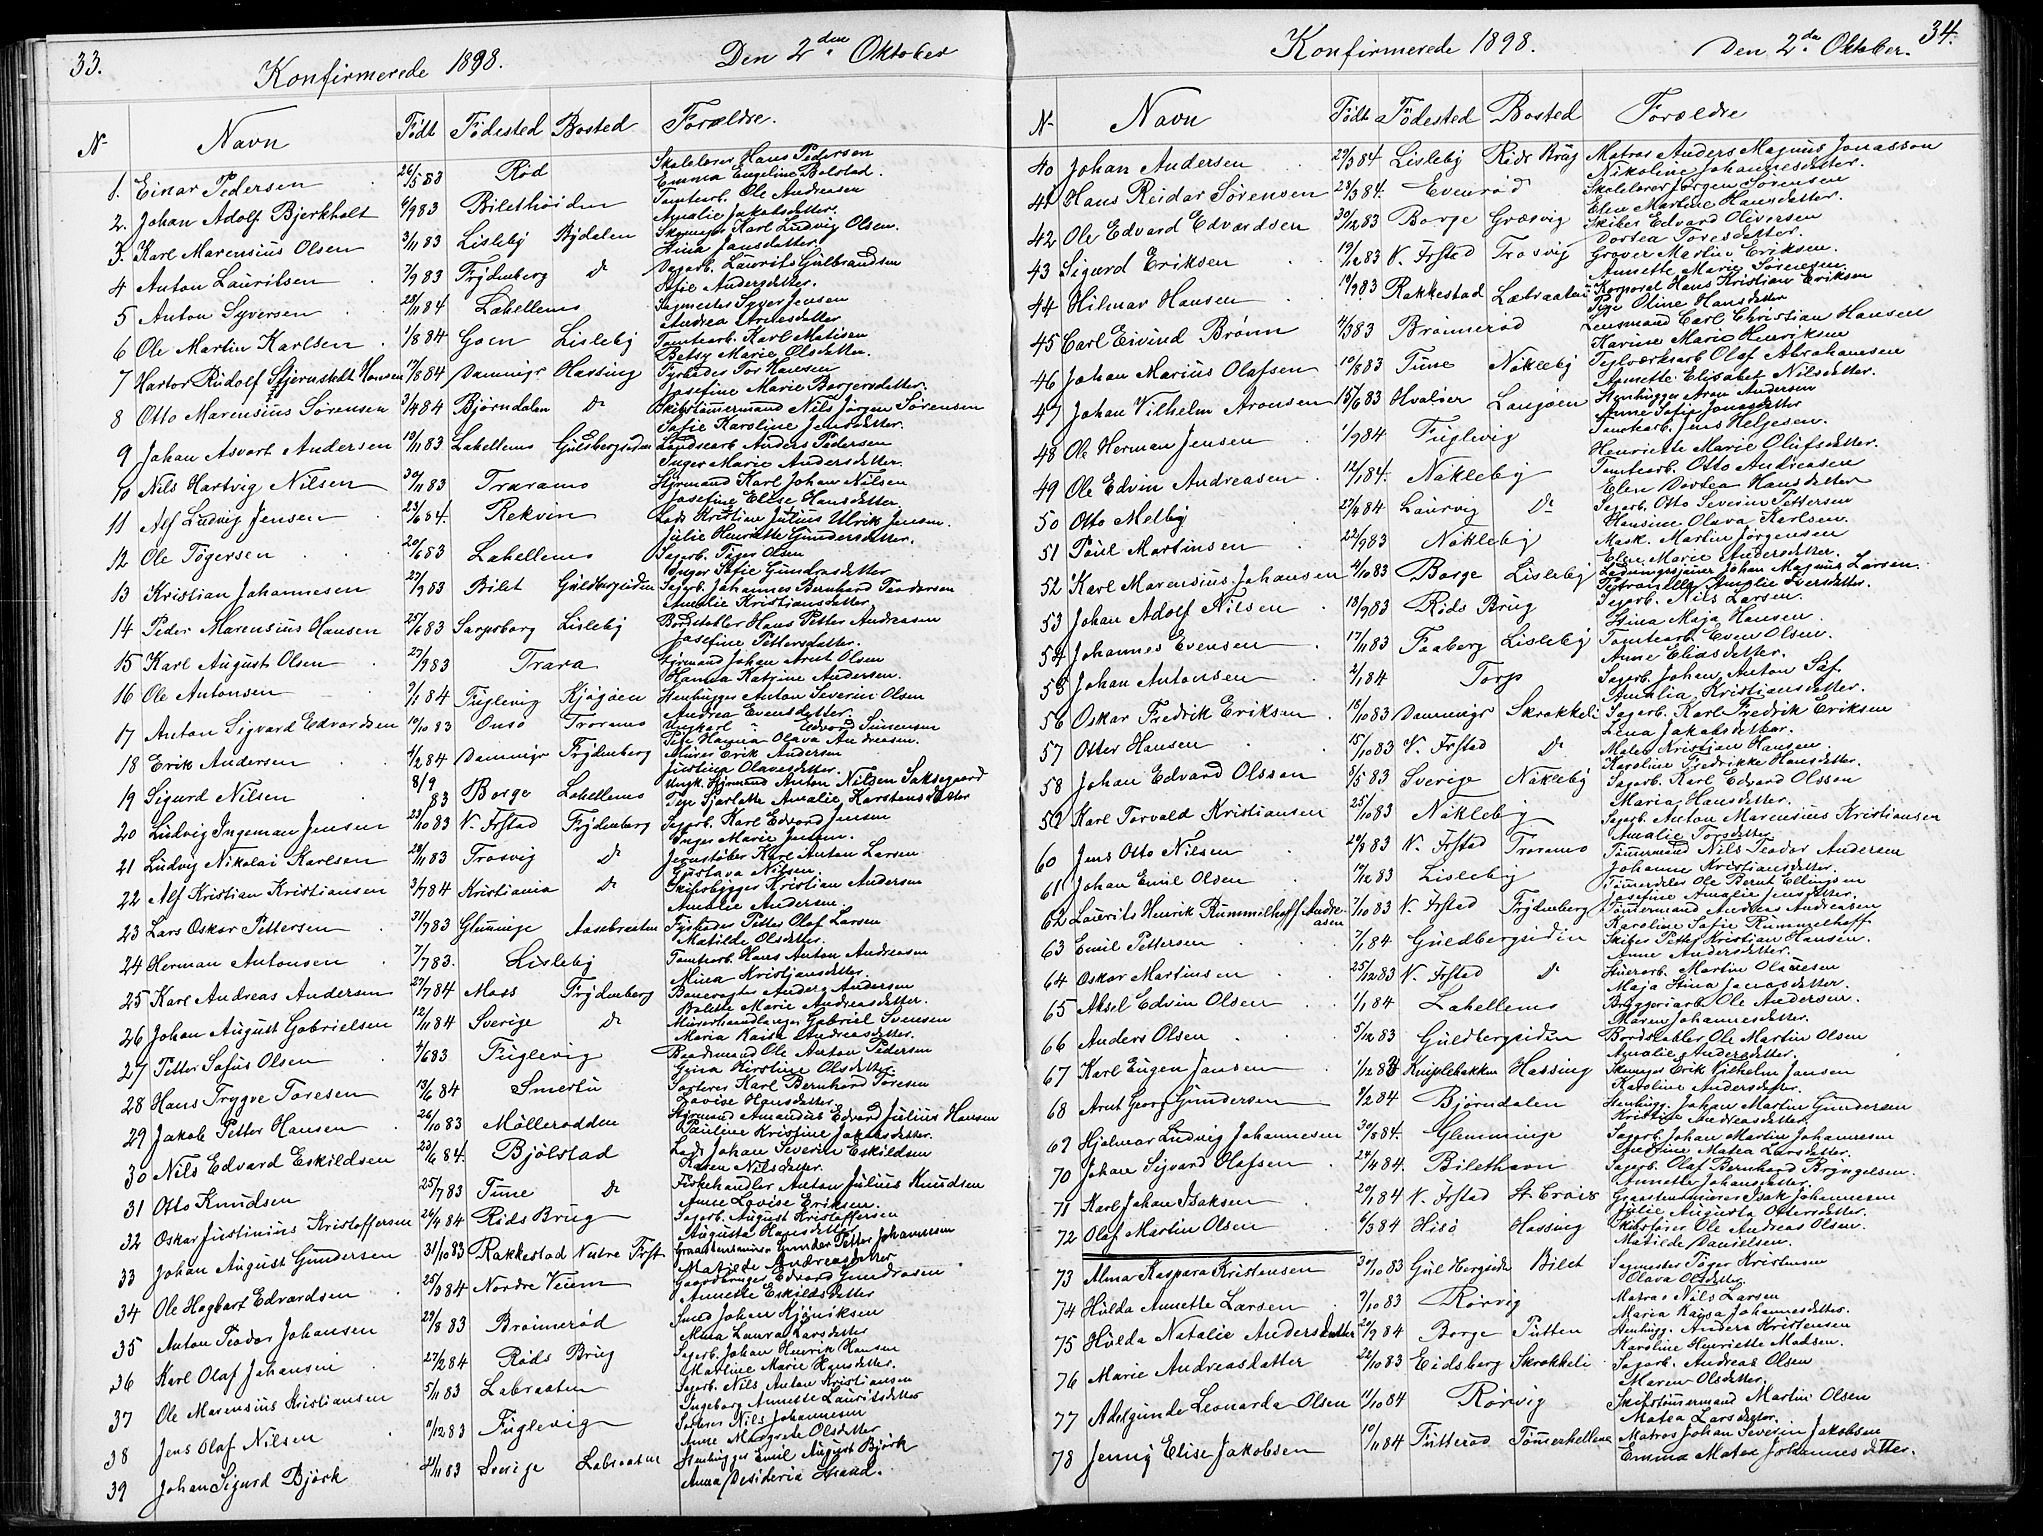 33.
Konfirmerede 1898. Den 2den Oktober
N Navn Födt Födested Bosted Forældre.
1. Einar Pedersen 26/5 83 Röd Skolelærer Hans Pedersen
Emma Engeline Bolstad.
2. Johan Adolf Bjerkholt 6/9 83 Bilethöiden Tomtearb. Ole Andreasen
Amalie Jakobsdetter.
3. Karl Marensius Olsen 3/11 83 Lisleby Bydalen Skomager Karl Ludvig Olsen.
Stina Jansdetter.
4 Anton Lauritsen 7/9 83 Trydenberg Do Dagarb. Laurits Gulbrandsen
Sofie Andersdetter.
5 Anton Syversen 28/11 84 Lahellemo Sagmester Syver Jensen
Andrea Arnesdetter
6 Ole Martin Karlsen 1/8 84 Goen Lisleby Tomtearb. Karl Matisen
Betsy Marie Olsdetter.
7 Hartor Rudolf Stjernstedt Hansen 17/8 84 Hassing Fyrbøder Tor Hansen
Josefine Marie Borgersdetter.
8 Otto Marensius Sørensen 3/4 84 Bjørndalen Do Skibstömermand Nils Jörgen Sørensen
Sofie Karoline Jensdetter.
9 Johan Asvort Andersen 19/11 83 Lahellemo Anders Pedersen
Inger Marie Andersdetter.
10 Nils Hartvig Nilsen 30/11 83 Traramo Styrmand Karl Johan Nilsen
Josefine Elise Hansdetter.
11 Alf Ludvig Jensen 23/6 84. Rekvin Lods Kristian Julius Ulrik Jensen.
Julie Henriette Gundersdetter.
12 Ole Tögersen 20/6 83 Lahellemo Sagarb. Töger Olsen
Inger Sofie Gundrosdetter
13 Kristian Johannesen 23/9 83 Bilet Guldbergsiden Sagarb. Johannes Bernhard Teodorsen
Amalie Kristiansdetter
14 Peder Marensius Hansen 25/6 83 Sarpsborg Lisleby Bordstabler Hans Petter Andreasen
Josefine Pettersdatter.
15 Karl August Olsen 27/9 83 Trara Styrmand Johan Arnt Olsen
Hanna Katrine Andersen.
16 Ole Antonsen 9/1 84 Fuglevig Kjøgøen Stenhugger Anton Severin Olsen
Andrea Evensdetter
17 Anton Sigvard Edvardsen 10/10 83 Onsö Traramo Ungkarl Edvard Simensen
Pige Hanna Olava Andreasen.
18 Erik Andersen 4/2 84 Trydenberg Murer Erik Andersen
Justina Olavesdetter.
19 Sigurd Nilsen 8/9 83 Borge Lahellemo Ungk. Styrmand Anton Nilsen Saksegaard
Pige Sjarlotte Amalie Karstensdatter
20 Ludvig Ingeman Jensen 23/10 83 V. Frstad Trydenberg Sagarb. Karl Edvard Jensen
Inger Marie Jensen.
21 Ludvig Nikolai Karlsen 28/11 83 Trosvig Do Jernstöber Karl Anton Larsen
Gustava Nilsen
22 Alf Kristian Kristiansen 3/7 84 Kristiania Do Skibsbygger Kristian Andersen
Amalie Andersen.
23 Lars Oskar Pettersen 31/7 83 Glemminge Aasebraaten Fyrböder Petter Olaf Larsen
Matilde Olsdetter.
24 Herman Antonsen 7/7 83. Lisleby Tomtearb. Hans Anton Andreasen
Mina Kristiansdetter.
25 Karl Andreas Andersen 27/7 84 Moss Trydenberg Banevogter Anders Andersen
Bolette Marie Andreasdetter.
26 Johan August Gabrielsen 12/11 84 Sverige Do Murerhandlanger Gabriel Svensen
Maria Kaisa Andreasdetter.
27 Petter Sofus Olsen 4/6 83 Fuglevig Ole Anton Pedersen
Gina Kirstine Olsdetter.
28 Hans Trygve Toresen 13/6 84 Smertu Sorterer Karl Bernhard Toresen
Lovise Hansdetter.
29 Jakob Petter Hansen 26/10 83 Möllerodden Styrmand Amandus Edvard Julius Hansen
Pauline Kristine Jakobsdetter.
30 Nils Edvard Eskildsen 23/6 84. Bjölstad Lods Johan Severin Eskildsen
Karen Nilsdetter.
31 Otto Knudsen 25/7 83 Tune Do Fiskehandler Anton Julius Knudsen
Anne Lovise Eriksen.
32 Oskar Justinius Kristoffersen 26/4 84 Röds Brug Sagarb. August Kristoffersen
Augusta Hansdetter
33 Johan August Gundersen 31/10 83 Rakkestad Gunder Petter Johannesen
Matilde Andreasdetter
34 Ole Hagbart Edvardsen 25/3 84 Nordre Veum Gaardbruger Edvard Gundrosen
Annette Eskildsdetter
35 Anton Teodor Johansen 29/8 83 Brönnerød Smed Johan Hjönriksen
Alma Laura Larsdetter
36 Karl Olaf Johansen 27/2 84 Röds Brug Sagarb. Johan Henrik Hansen
Martine Marie Hansdetter.
37 Ole Marensius Kristiansen 5/11 83 Labraaten Sagarb. Nils Anton Kristiansen
Ingeborg Annette Lauritsdetter
38 Jens Olaf Nilsen 11/12 83 Fuglevig Sorterer Nils Johannesen
Anne Margrete Olsdetter
39 Johan Sigurd Björk 21/11 83 Sverige Labraaten Stenhugger Emil August Björk
Anna Desideria Strand.
34.
Konfirmerede 1898. Den 2de Oktober.
N Navn Födt Födested Bosted Forældre
40 Johan Andersen 29/3 84 Lisleby Röds Brug Matros Anders Magnus Jonasson
Nikoline Johannesdetter.
41 Hans Reidar Sørensen 23/3 84. Evenröd Skolelærer Jörgen Sørensen
Elen Martine Hansdetter.
42 Ole Edvard Edvardsen 30/12 83 Borge Græsvig Skiber Edvard Oliversen
Dortea Toresdetter.
43 Sigurd Eriksen 19/12 83 V. Frstad Trosvig Graver Martin Eriksen.
Annette Marie Sørensen
44 Hilmar Hansen 14/9 83 Rakkestad Læbraaten Korporal Hans Kristian Eriksen
Pige Oline Hansdetter
45 Carl Eivind Brönn 4/3 83 Brönnerød Lensmand Carl Christian Hansen
Karine Marie Henriksen
46 Johan Marius Olafsen 10/8 83 Tune Nökleby Teglværksarb Olaf Abrahamsen
Annette Elisabet Nilsdetter.
47 Johan Vilhelm Aronsen 15/6 83 Hvaløer Langöen Stenhugger Aron Andersen
Anne Sofie Jonasdetter
48 Ole Herman Jensen 1/9 84 Fuglevig Tomtearb. Jens Helgesen.
Henriette Marie Olufsdetter.
49 Ole Edvin Andreasen 12/1 84. Nökleby Tomtearb. Otto Andreasen
Elen Dortea Hansdetter
50 Otto Melby 27/6 84 Laurvig Do Sagarb. Otto Severin Pettersen
Hansine Olava Karlsen.
51 Paul Martinsen 22/9 83 Nökleby Mask. Martin Jörgensen
Elen Marie Andersdetter.
52 Karl Marensius Johansen 4/10 83 Borge Lisleby Johan Magnus Larsen
Petronelle Amalie Iversdetter.
53 Johan Adolf Nilsen 18/9 83 Röds Brug Sagarb. Nils Larsen.
Stina Maja Hansen.
54 Johannes Evensen 17/11 83 Faaberg Lisleby Tomtearb Even Olsen.
Anne Eliasdetter.
55 Johan Antonsen 2/1 84 Torp Sagarb. Johan Anton Säf.
Amalia Kristiansdetter.
56 Oskar Fredrik Eriksen 18/10 83 Skrokkeli Sagarb. Karl Fredrik Eriksen
Lina Jakobsdetter.
57 Otter Hansen 15/10 83 V. Frstad Do Maler Kristian Hansen
Karoline Fredrikke Hansdetter.
58 Johan Edvard Olsson 5/5 83 Sverige Nökleby Sagarb. Karl Edvard Olsson
Maria Hansdetter.
59 Karl Torvald Kristiansen 25/10 83 Nökleby Sagarb. Anton Marensius Kristiansen
Amalie Torsdetter
60 Jens Otto Nilsen 29/8 83 V. Frstad Traramo Tömmermand Nils Teodor Andersen
Johanne Kristiansdetter.
61 Johan Emil Olsen 17/12 83 Lisleby Tömerdeler Ole Bernt Ellingsen
Josefine Amalie Jensdetter.
62 Laurits Henrik Rummelhoff Andreasen 7/10 83 V. Frstad Trydenberg Tömmermand Andreas Andreasen
Karoline Sofie Rummelhoff
63 Emil Pettersen 7/1 84 Guldbergsiden Skiber Petter Kristian Hansen.
Anne Andersdetter.
64 Oskar Martinsen 25/12 83 V. Frstad Do Stuerarb. Martin Olausen
Maja Stina Jonasdetter.
65 Aksel Edvin Olsen 1/1 84 Lahellemo Bryggeriarb Ole Andersen.
Maren Johannesdetter.
66 Anders Olsen 5/12 83 Guldbergsiden Bordstabler Ole Martin Olsen
Amalie Andersdetter.
67 Karl Eugen Jansen 1/12 83 Kniplebakken Hassing Skomager Erik Vilhelm Jansen
Karoline Andersdetter.
68 Arnt Georg Gundersen 9/2 84 Björndalen Stenhugg. Johan Martin Gundersen
Kristine Andreasdetter.
69 Hjalmar Ludvig Johannesen 30/8 84. Glemminge Sagarb. Johan Martin Johannesen
Matea Larsdetter.
70 Johan Sigvard Olafsen 24/4 84. Bilethavn Sagarb. Olaf Bernhard Bryngelsen.
Annette Johansdatter.
71 Karl Johan Isaksen 29/1 84 V. Frstad St. Croix Graastensmurer Isak Johannesen
Julie Augusta Ottersdetter.
72 Olaf Martin Olsen 6/3 84 Hisö Hassing Skibsförer Ole Andreas Olsen.
Matilde Danielsen.
73 Alma Kaspara Kristensen 30/10 83 Guldbergside Bilet Sagmester Töger Kristensen
Olava Olsdetter.
74 Hulda Annette Larsen 7/10 83 Rörvig Matros Nils Larsen
Maria Kajsa Johannesdetter.
75 Hulda Natalie Andersdatter 20/9 84 Borge Putten Stenhugg. Anders Kristensen
Karoline Henriette Madsen.
76 Marie Andreasdatter 22/10 83 Eidsberg Skrokkeli Sagarb. Andreas Olsen
Maren Olsdetter.
77 Adelgunde Leonarda Olsen 11/10 84 Rörvig Skibstömermand Martin Olsen
Matea Larsdetter.
78 Jenny Elise Jakobsen 10/11 84 Tutteröd Tömerhellene Matros Johan Severin Jakobsen
Emma Matea Johannesdetter.